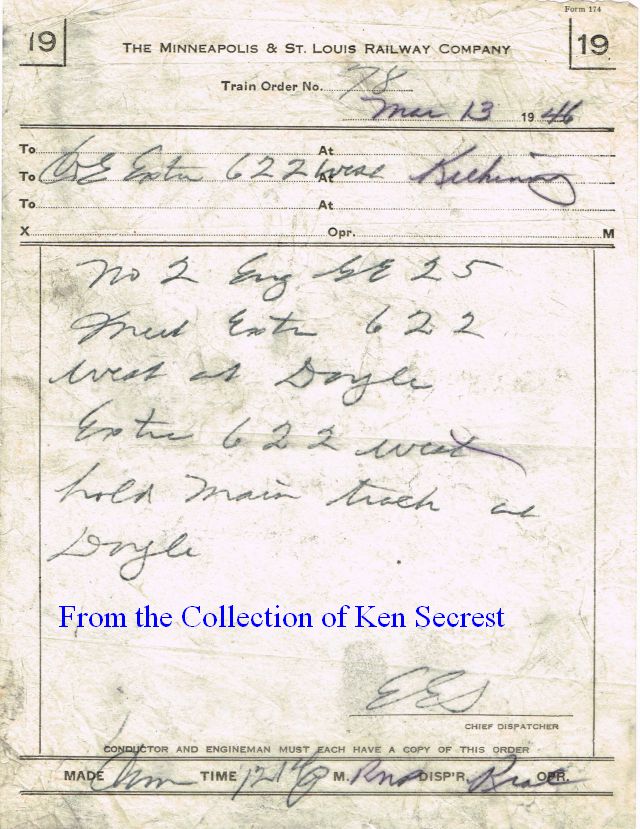 Form 174
19 19
THE MINNEAPOLIS & ST. LOUIS RAILWAY COMPANY
Train Order No. 78
Mar 13 1946
To At
To C&E Extra 622 West At
To At
X Opr. M
No 2 Eng GE 25
Meet Extra 622
West at Doyle
Extra 622 West
hold main track at
Doyle
From the Collection of Ken Secrest
EES
CHIEF DISPATCHER
CONDUCTOR AND ENGINEMAN MUST EACH HAVE A COPY OF THIS ORDER
MADE Com TIME M. DISP'R. OPR.